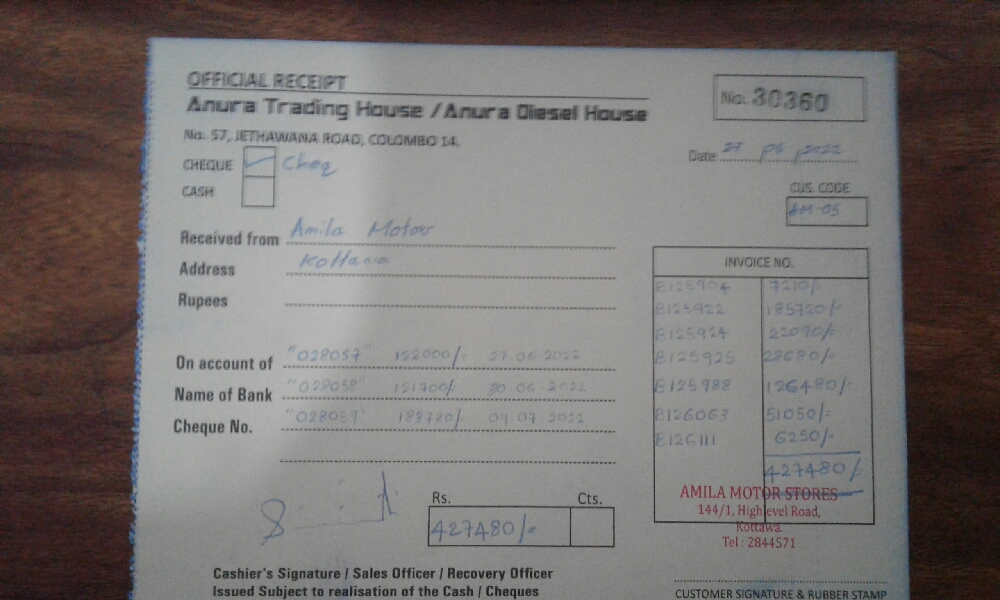 OFFICIAL RECEIPT
Anura Trading House / Anura Diesel House
No. 30360
No. 57, JETHAWANA ROAD, COLOMBO 14.
Date 27 05 2022
CHEQUE Cheq
CASH
CUS. CODE
AM-05
Received from Amila Motors
Address Kottawa
Rupees
INVOICE NO.
B125904 7210/-
B125922 185720/-
B125924 22090/-
B125925 28680/-
B125988 126480/-
B126063 51050/-
B126111 6250/-
427480/-
On account of "028057" 122000/- 27.06.2022
Name of Bank "028058" 121700/- 30.06.2022
Cheque No. "028059" 183780/- 09.07.2022
AMILA MOTOR STORES
144/1, High level Road,
Kottawa.
Tel : 2844571
Rs. Cts.
427480/-
Cashier's Signature / Sales Officer / Recovery Officer
Issued Subject to realisation of the Cash / Cheques
CUSTOMER SIGNATURE & RUBBER STAMP